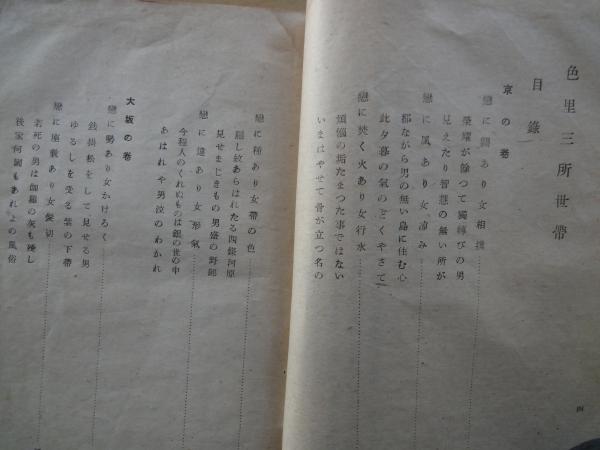 色里三所世帶
目錄
京の卷
戀に關あり女相撲
榮耀が餘つて獨轉びの男
見えたり智慧の無い所が
戀に風あり女凉み
都ながら男の無い島に住む心
此夕暮の氣のどくやさて
戀に焚く火あり女行水
煩惱の垢たまつた事ではない
いまはやせて骨が立つ名の
戀に種あり女帶の色
隱し紋あらはれたる四條河原
見せまじきもの男盛の野郎
戀に違あり女形氣
今程人のくれぬものは銀の世の中
あはれや男泣のわかれ
大坂の卷
戀に勢あり女かけろく
錢掛松をして見せる男
ゆるしを受る紫の下帶
戀に座敷あり女髮切
若死の男は伽羅の灰も殘し
後家何國もあれよの風俗
四